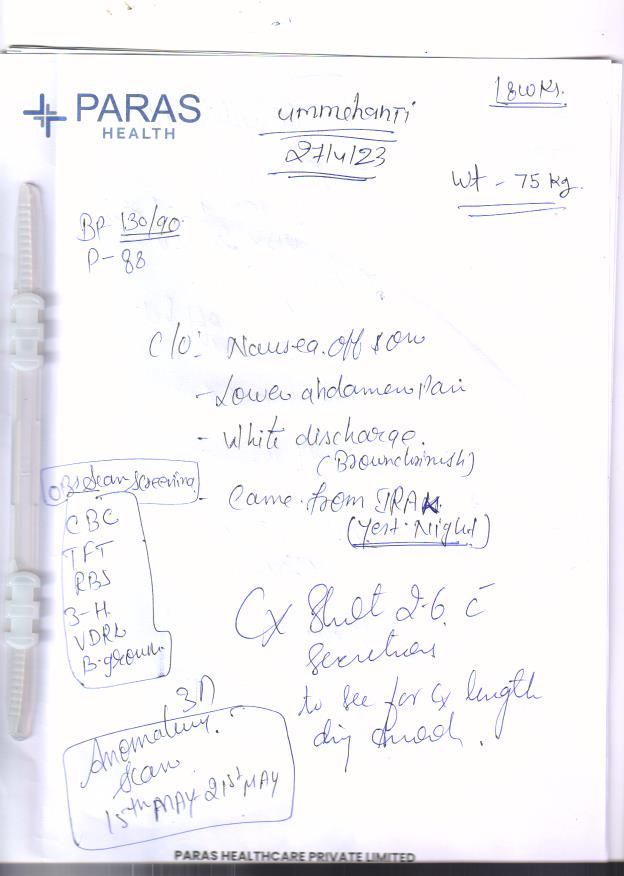 PARAS
HEALTH
ummehanti
27/4/23
18 wks.
Wt - 75 kg.
BP 130/90
P- 88
C/O: Nausea. off & on
- Lower abdamen Pain
- White discharge.
(Brounchinish)
- Came from IRAK
(Yest. Night)
OBS Scan Screening
CBC
TFT
RBS
3-H
VDRL
B. group
Cx 2.6 c̄
secretions
to see for Cx length
3D
Scan
15th MAY - 21st MAY
PARAS HEALTHCARE PRIVATE LIMITED